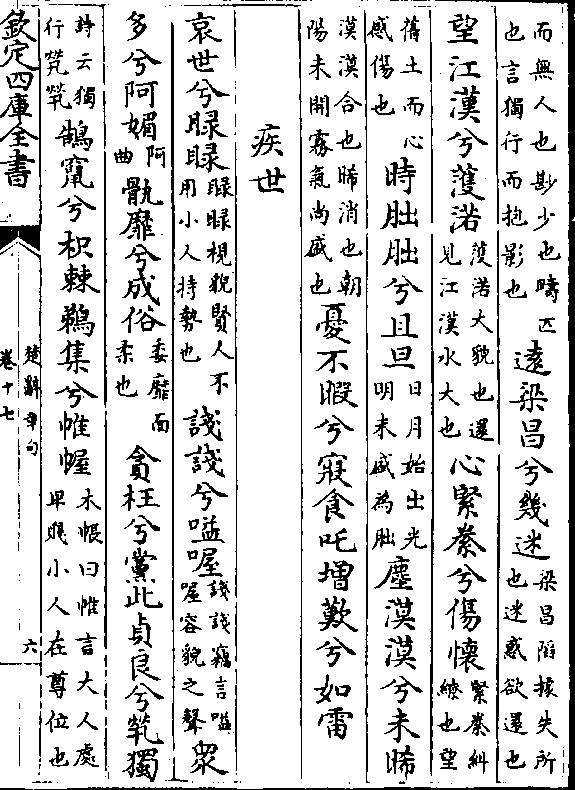 而無人也尠少也疇匹也言獨行而抱影也遠梁昌兮幾迷梁昌陷據失所也迷惑欲還也
望江漢兮濩渃濩渃大貌也還見江漢水大也心緊絭兮傷懷緊絭糾繚也望
舊土而心感傷也時昢昢兮且旦日月始出光明未盛為昢塵漠漠兮未晞
漠漠合也晞消也朝陽未開霧氣尚盛也憂不暇兮寢食吒增歎兮如雷
疾世
哀世兮睩睩睩睩視貌賢人不用小人持勢也諓諓兮嗌喔諓諓竊言嗌喔容貌之聲衆
多兮阿媚阿曲骫靡兮成俗委靡面柔也貪枉兮黨此貞良兮煢獨
詩云獨行煢煢鵠竄兮枳棘鵜集兮帷幄木帳曰帷言大人處卑賤小人在尊位也
欽定四庫全書
楚辭章句
卷十七
六